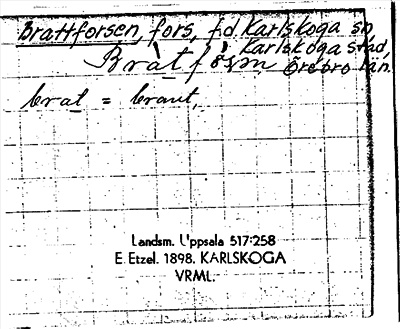 Brattforsen, fors, f.d. Karlskoga sn,
Karlskoga stad,
Örebro län.
brat = braut,
Landsm. Uppsala 517:258
E. Etzel. 1898. KARLSKOGA
VRML.